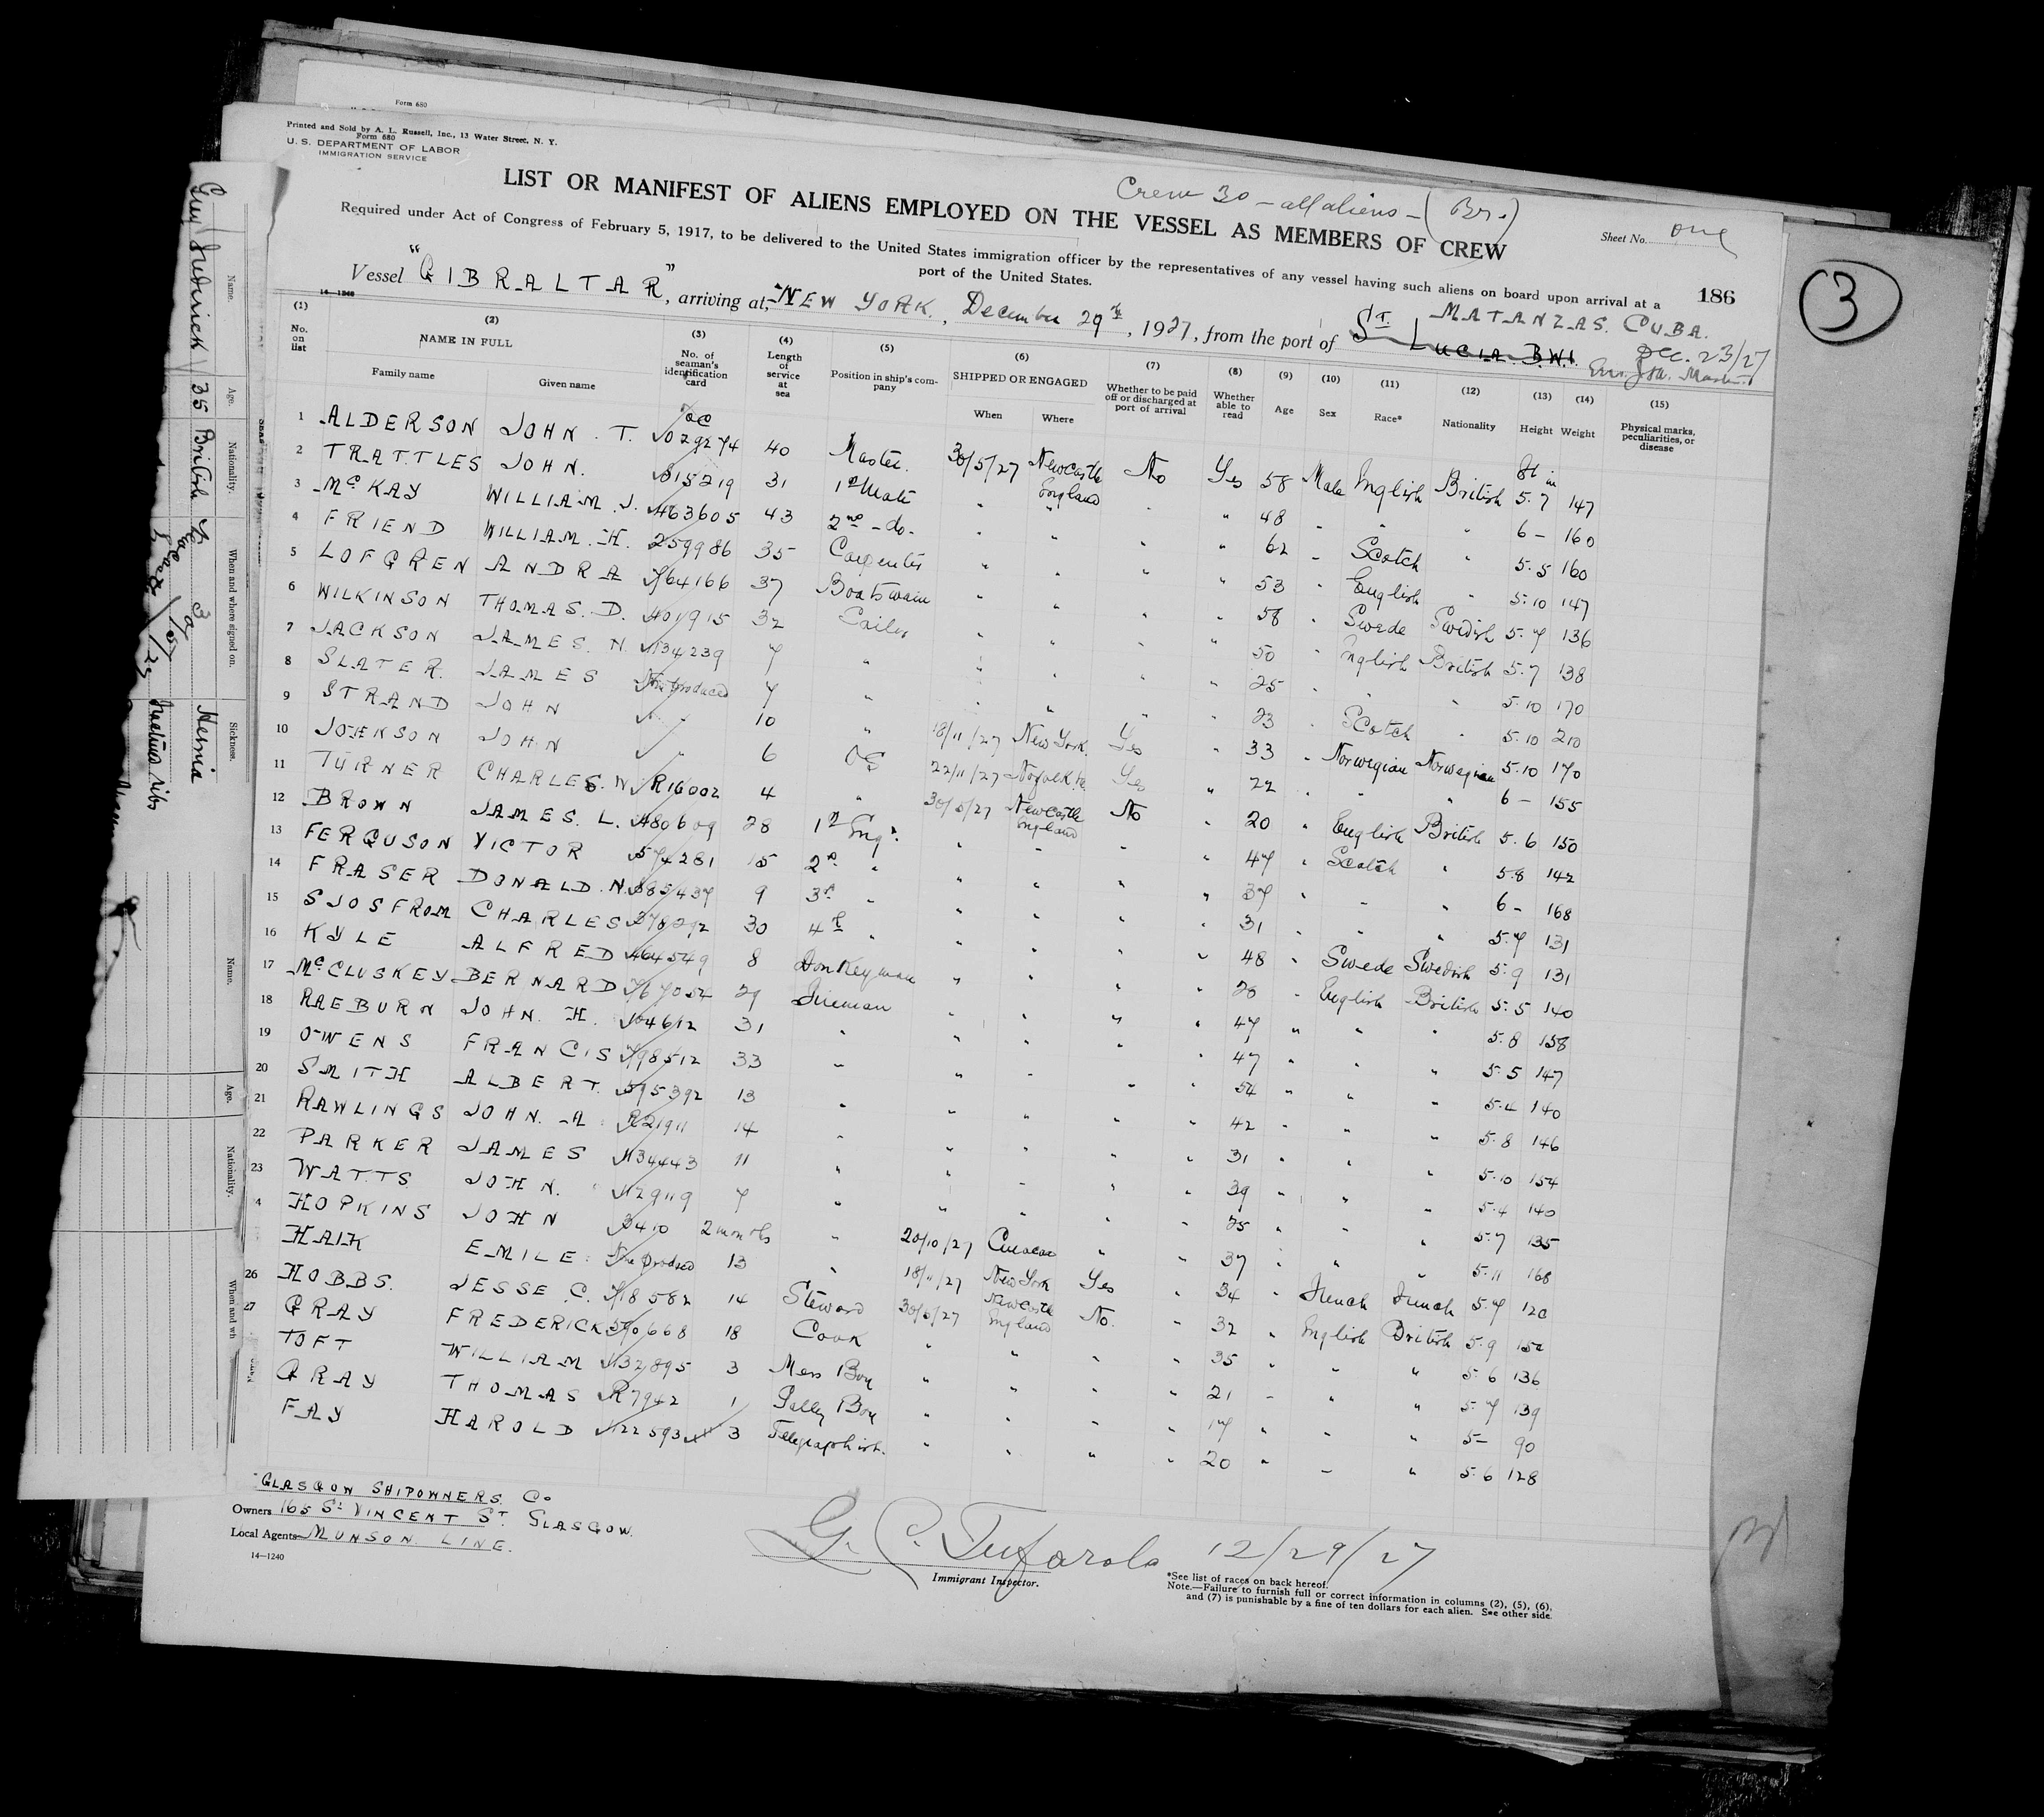 Form 680
Printed and Sold by A. L. Russell, Inc., 13 Water Street, N. Y.
Form 680
U. S. DEPARTMENT OF LABOR
IMMIGRATION SERVICE
Crew 30 - all aliens - (Br.)
LIST OR MANIFEST OF ALIENS EMPLOYED ON THE VESSEL AS MEMBERS OF CREW
Sheet No. one
Required under Act of Congress of February 5, 1917, to be delivered to the United States immigration officer by the representatives of any vessel having such aliens on board upon arrival at a
port of the United States.
186
3
MATANZAS. CUBA.
Vessel "GIBRALTAR", arriving at NEW YORK, December 29th, 1927, from the port of ST. LUCIA. BWI.
Dec. 23/27
14-1240
(1) (2) (3) (4) (5) (6) (7) (8) (9) (10) (11) (12) (13) (14) (15)
No. on list NAME IN FULL Family name Given name No. of seaman's identification card Length of service at sea Position in ship's company SHIPPED OR ENGAGED When Where Whether to be paid off or discharged at port of arrival Whether able to read Age Sex Race* Nationality Height Weight Physical marks, peculiarities, or disease
ft in
1 ALDERSON JOHN. T. 029274 40 Master. 30/5/27 Newcastle England No Yes 58 Male English British 5.7 147
2 TRATTLES JOHN. 815219 31 1st Mate " " " " 48 " " " 6 - 160
3 McKAY WILLIAM. J. 463605 43 2nd - do - " " " " 62 " Scotch " 5.5 160
4 FRIEND WILLIAM. H. 259986 35 Carpenter " " " " 53 " English " 5.10 147
5 LOFGREN ANDRA 764166 37 Boatswain " " " " 58 " Swede Swedish 5.7 136
6 WILKINSON THOMAS. D. 401915 32 Sailor " " " " 50 " English British 5.7 138
7 JACKSON JAMES. N. 1134239 7 " " " " " 25 " " " 5.10 170
8 SLATER. JAMES None produced 7 " " " " " 23 " Scotch " 5.10 210
9 STRAND JOHN " 10 " 18/11/27 New York. Yes " 33 " Norwegian Norwegian 5.10 170
10 JOHNSON JOHN " 6 OS 22/11/27 Norfolk Va Yes " 22 " " " 6 - 155
11 TURNER CHARLES. W. R16002 4 " 30/5/27 Newcastle England No " 20 " English British 5.6 150
12 BROWN JAMES. L. 480609 28 1st Engr. " " " " 47 " Scotch " 5.8 142
13 FERGUSON VICTOR 574281 15 2nd " " " " " 37 " " " 6 - 168
14 FRASER DONALD. N. 885437 9 3rd " " " " " 31 " " " 5.7 131
15 SJOSFROM CHARLES 378292 30 4th " " " " " 48 " Swede Swedish 5.9 131
16 KYLE ALFRED 464549 8 Donkeyman " " " " 28 " English British 5.5 140
17 McCLUSKEY BERNARD 767054 29 Fireman " " " " 47 " " " 5.8 158
18 RAEBURN JOHN. H. 104612 31 " " " " " 47 " " " 5.5 147
19 OWENS FRANCIS 798512 33 " " " " " 54 " " " 5.4 140
20 SMITH ALBERT. 595392 13 " " " " " 42 " " " 5.8 146
21 RAWLINGS JOHN. A. R21911 14 " " " " " 31 " " " 5.10 154
22 PARKER JAMES 1134443 11 " " " " " 39 " " " 5.4 140
23 WATTS JOHN. 1129119 7 " " " " " 25 " " " 5.7 135
4 HOPKINS JOHN 3410 2 months " 20/10/27 Curacao " " 37 " " " 5.11 168
HAIK EMILE. None produced 13 " 18/11/27 New York Yes " 34 " French French 5.7 120
26 HOBBS. JESSE. C. 718582 14 Steward 30/5/27 Newcastle England No. " 32 " English British 5.9 150
27 GRAY FREDERICK 590668 18 Cook " " " " 35 " " " 5.6 136
TOFT WILLIAM 1132895 3 Mess Boy " " " " 21 " " " 5.7 139
GRAY THOMAS R7942 1 Galley Boy " " " " 17 " " " 5 - 90
FAY HAROLD 1122593 3 Telegraphist. " " " " 20 " " " 5.6 128
GLASGOW SHIPOWNERS. Co
Owners 165 St VINCENT ST. GLASGOW.
Local Agents MUNSON. LINE.
14—1240
G. C. Tufarolo 12/29/27
Immigrant Inspector.
*See list of races on back hereof.
Note.—Failure to furnish full or correct information in columns (2), (5), (6),
and (7) is punishable by a fine of ten dollars for each alien. See other side.
Name. Age. Nationality. When and where signed on. Sickness.
Gray Frederick 35 British Hernia
ribs
Name. Age. Nationality. When and wh